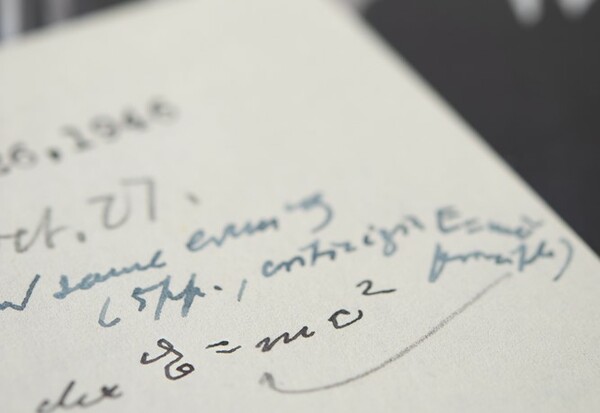 26, 1946
Oct. 27.
same evening
(5 pp., criticizing E=mc²
formula)
der E=mc²